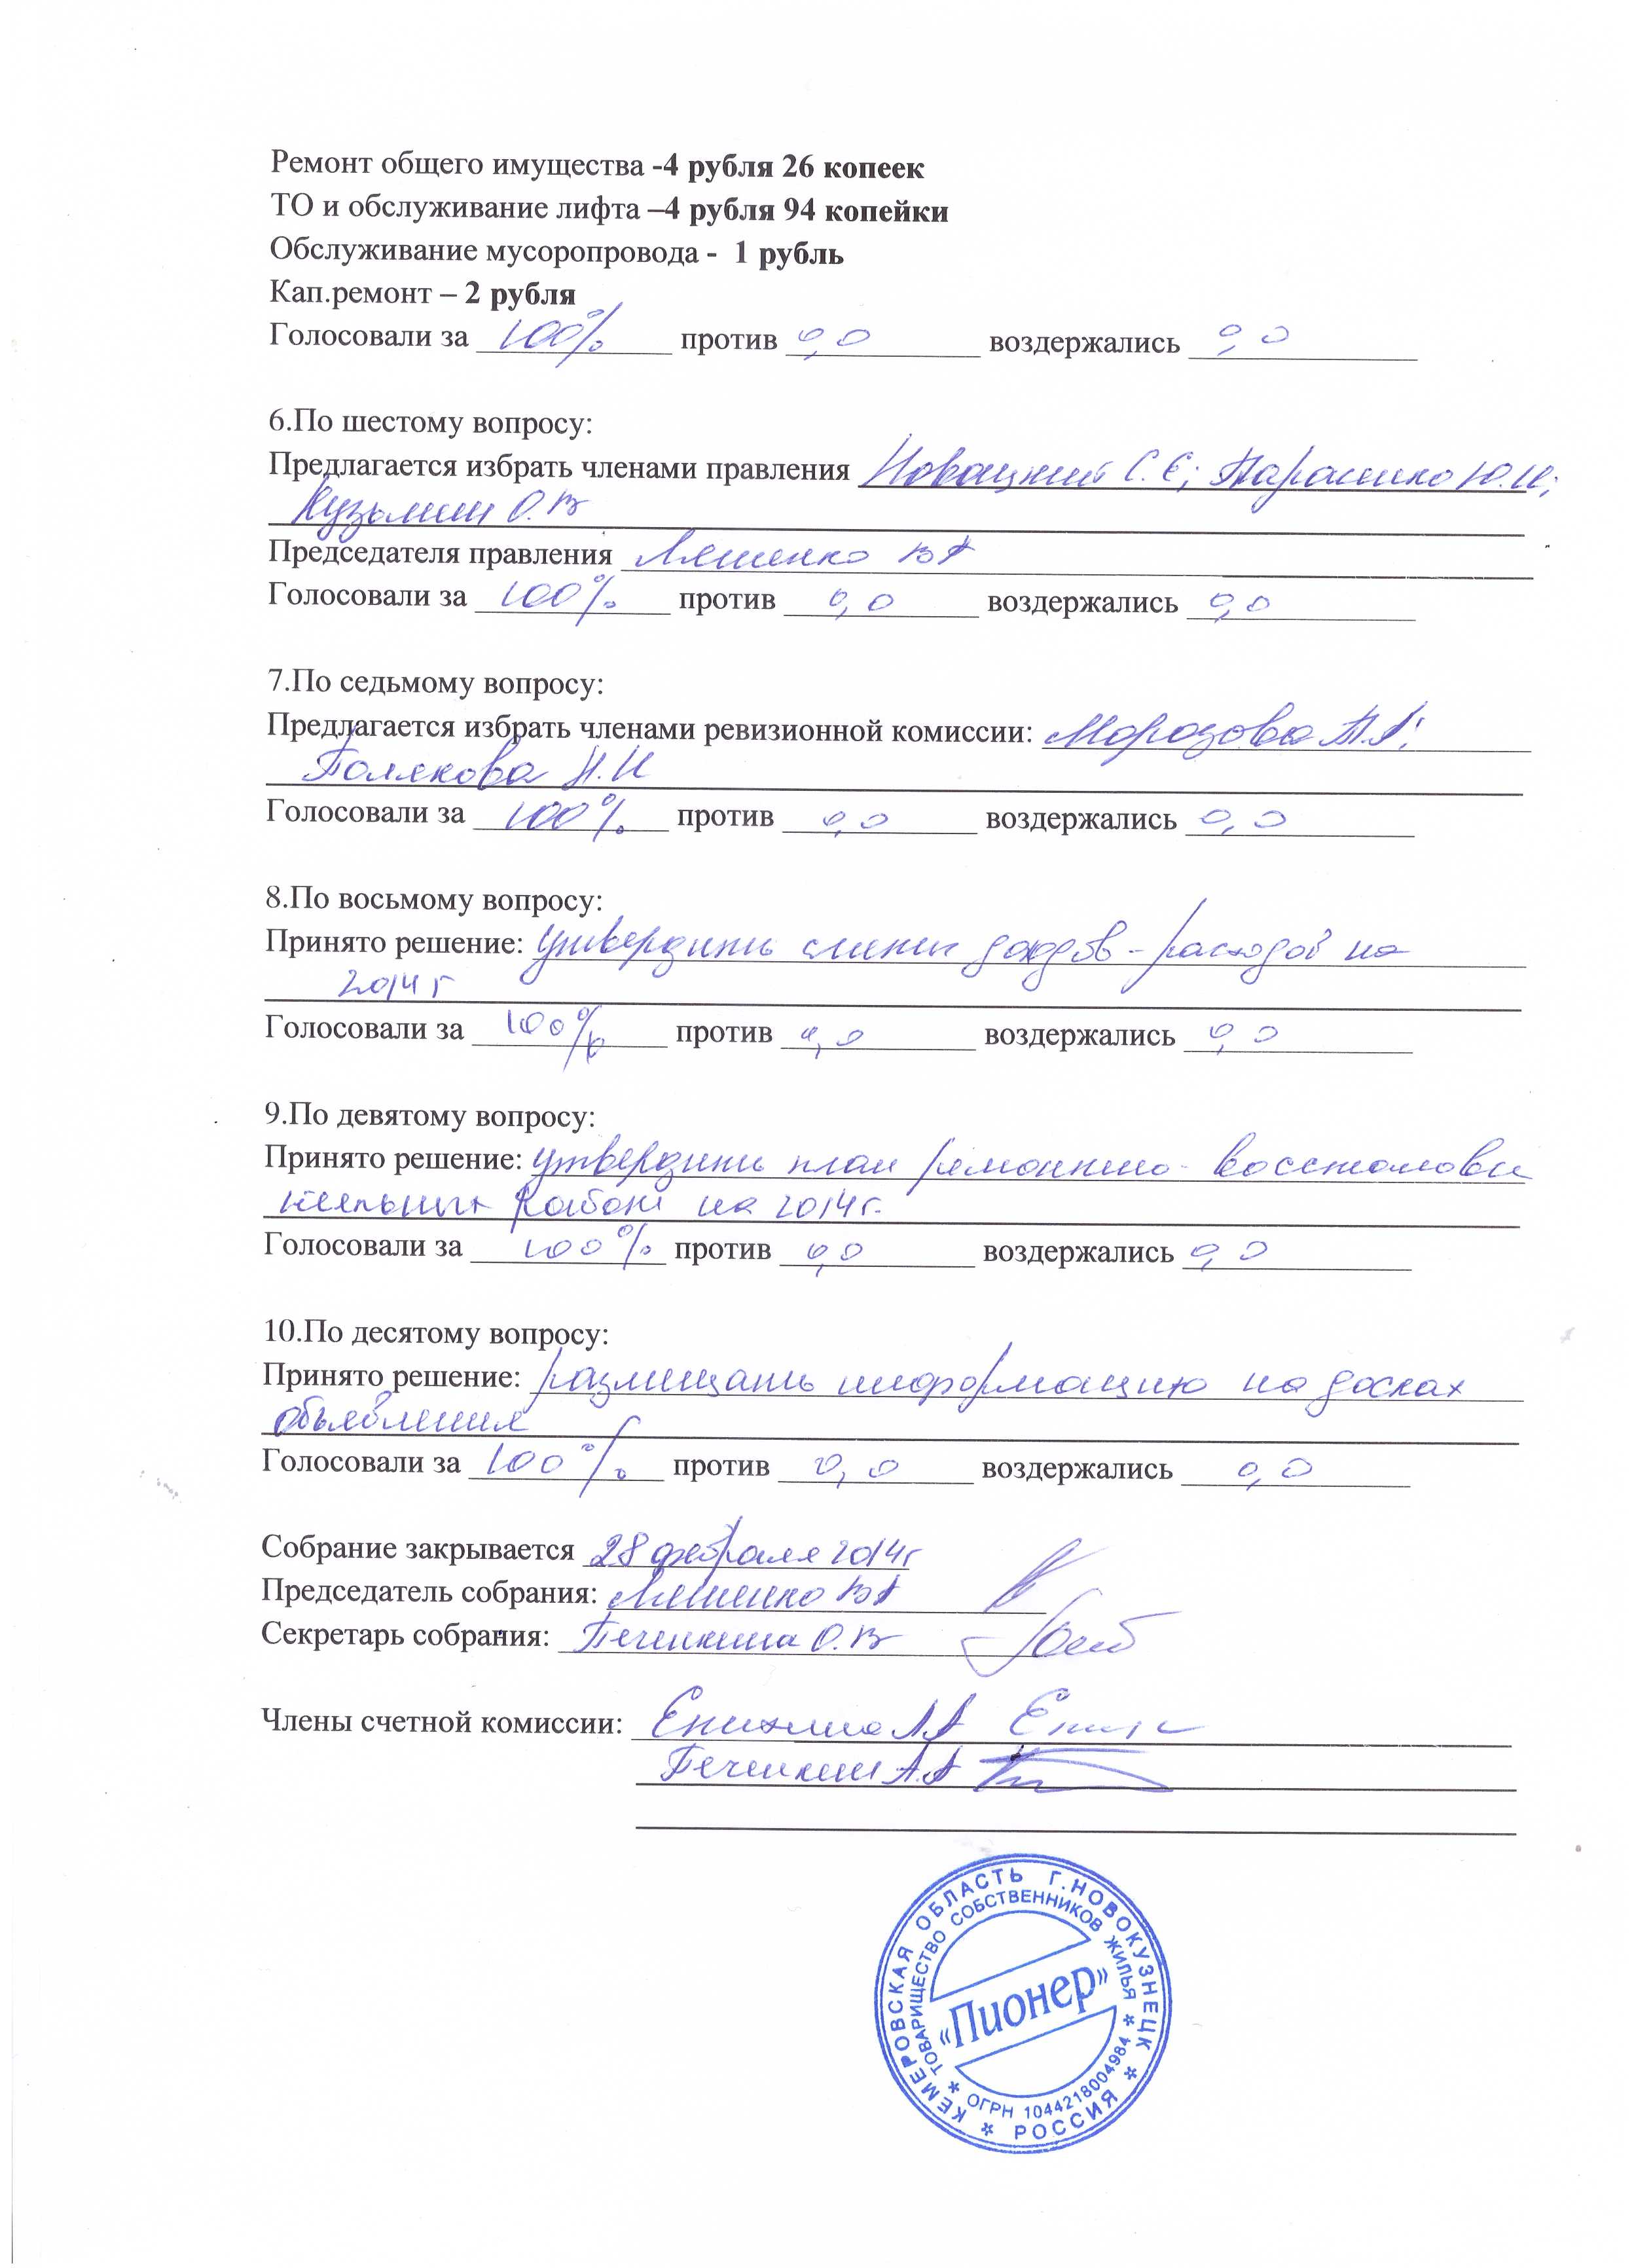 Ремонт общего имущества -4 рубля 26 копеек
ТО и обслуживание лифта –4 рубля 94 копейки
Обслуживание мусоропровода - 1 рубль
Кап.ремонт – 2 рубля
Голосовали за 100% против 0,0 воздержались 0,0
6.По шестому вопросу:
Предлагается избрать членами правления Новацкий С.Е; Парашико Ю.И;
Кузьмин О.В
Председателя правления Ляшенко ВА
Голосовали за 100% против 0,0 воздержались 0,0
7.По седьмому вопросу:
Предлагается избрать членами ревизионной комиссии: Морозова
Полякова Н.И
Голосовали за 100% против 0,0 воздержались 0,0
8.По восьмому вопросу:
Принято решение: Утвердить смету доходов-расходов на
2014г
Голосовали за 100% против 0,0 воздержались 0,0
9.По девятому вопросу:
Принято решение: утвердить план ремонтно-восстанови
тельных работ на 2014г.
Голосовали за 100% против 0,0 воздержались 0,0
10.По десятому вопросу:
Принято решение: размещать информацию на досках
объявления
Голосовали за 100% против 0,0 воздержались 0,0
Собрание закрывается 28 февраля 2014г
Председатель собрания: Ляшенко ВА
Секретарь собрания: Печенкина О.В
Члены счетной комиссии:
Печенкин А.А
КЕМЕРОВСКАЯ ОБЛАСТЬ Г.НОВОКУЗНЕЦК * РОССИЯ *
ТОВАРИЩЕСТВО СОБСТВЕННИКОВ ЖИЛЬЯ * ОГРН 1044218004984 *
«Пионер»